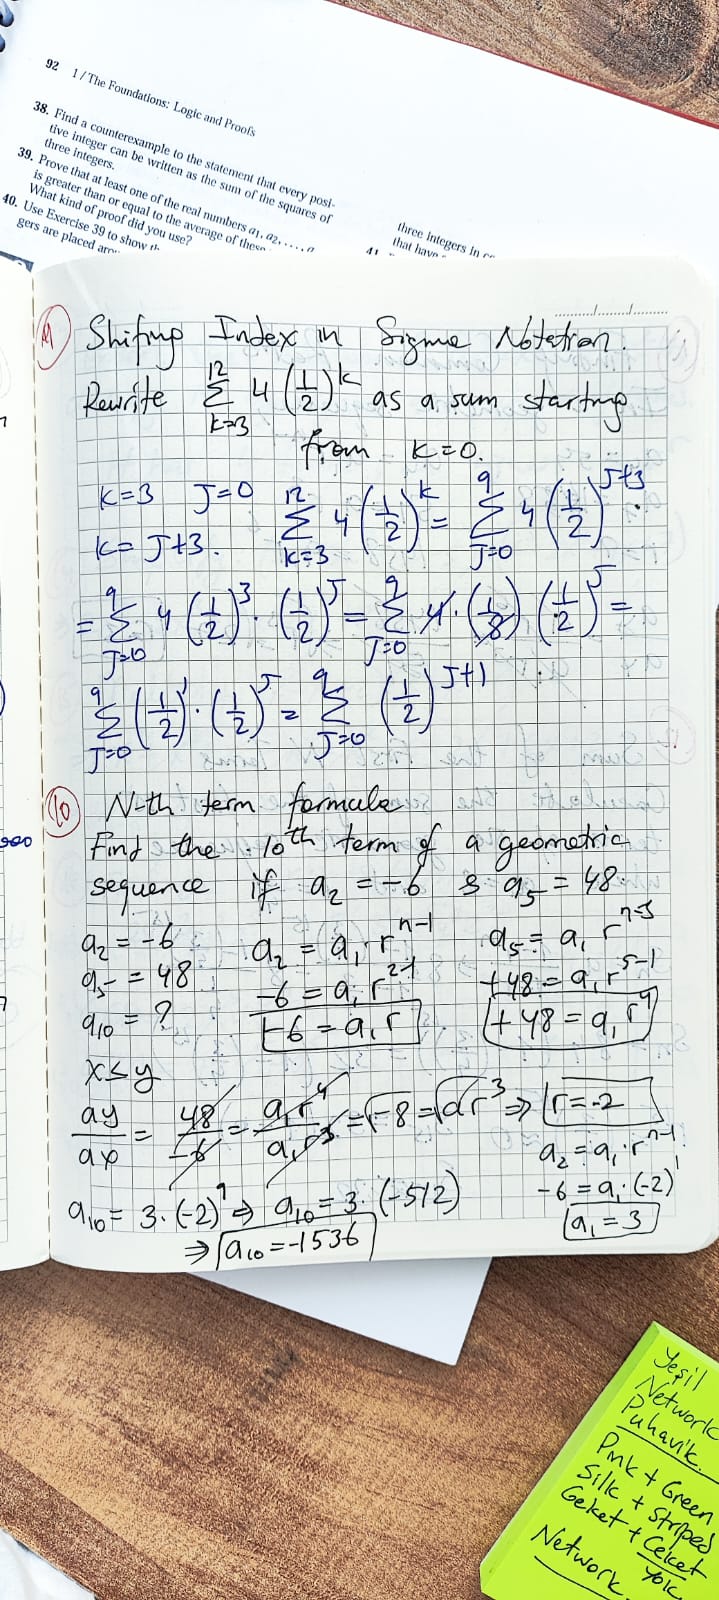 92 1 / The Foundations: Logic and Proofs
38. Find a counterexample to the statement that every posi-
tive integer can be written as the sum of the squares of
three integers.
39. Prove that at least one of the real numbers a₁, a₂, . . . , a
is greater than or equal to the average of these
What kind of proof did you use?
40. Use Exercise 39 to show
gers are placed
three integers in
that have
41
11 Shifing Index in Sigma Notation.
Rewrite 12 Σ k=3 4 (1/2)^k as a sum starting
from k=0.
k=3 J=0 12 Σ k=3 4 (1/2)^k = 9 Σ J=0 4 (1/2)^J+3
k= J+3.
= 9 Σ J=0 4 (1/2)^3 · (1/2)^J = 9 Σ J=0 4 · (1/8) (1/2)^J =
9 Σ J=0 (1/2)^1 · (1/2)^J = 9 Σ J=0 (1/2)^J+1
10 N-th term formula
Find the 10th term of a geometric
sequence if a₂ = -6 & a₅ = 48.
a₂ = -6 a₂ = a₁ · r^n-1 a₅ = a₁ r^n-5
a₅ = 48 -6 = a₁ r^2-1 +48 = a₁ r^5-1
a₁₀ = ? -6 = a₁ r +48 = a₁ r^4
x≤y
ay/ax = 48/-6 = a₁r^4/a₁r = √-8 = √ar^3 ⇒ r = -2
a₂ = a₁ · r^n-1
-6 = a₁ · (-2)^1
a₁ = 3
a₁₀ = 3 · (-2)^9 ⇒ a₁₀ = 3 · (-512)
⇒ a₁₀ = -1536
Yeşil
Network
Puhavik.
Pink + Green
Silk + Striped
Geket + Ceket
Yok
Network